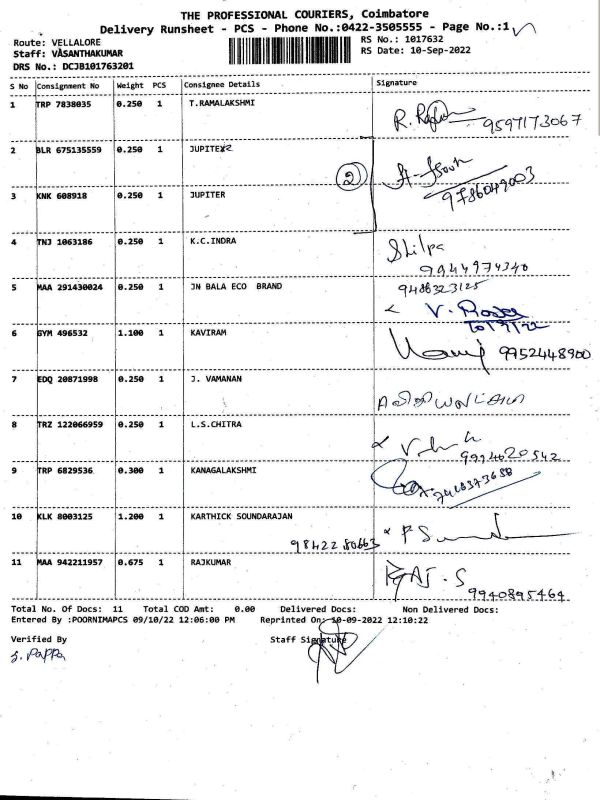 THE PROFESSIONAL COURIERS, Coimbatore
Delivery Runsheet - PCS - Phone No.:0422-3505555 - Page No.:1
Route: VELLALORE
RS No.: 1017632
Staff: VASANTHAKUMAR
RS Date: 10-Sep-2022
DRS No.: DCJB101763201
S No Consignment No Weight PCS Consignee Details Signature
1 TRP 7838035 0.250 1 T.RAMALAKSHMI
9597173067
2 BLR 675135559 0.250 1 JUPITER
2
9786049003
3 KNK 608918 0.250 1 JUPITER
4 TNJ 1063186 0.250 1 K.C.INDRA Shilpa
9944974340
5 MAA 291430024 0.250 1 JN BALA ECO BRAND 9486323125
10/9/22
6 GYM 496532 1.100 1 KAVIRAM
9952448900
7 EDQ 20871998 0.250 1 J. VAMANAN
8 TRZ 122066959 0.250 1 L.S.CHITRA
9994620542
9 TRP 6829536 0.300 1 KANAGALAKSHMI
10 KLK 8003125 1.200 1 KARTHICK SOUNDARAJAN
9842280663
11 MAA 942211957 0.675 1 RAJKUMAR
RAJ.S
9940895464
Total No. Of Docs: 11 Total COD Amt: 0.00 Delivered Docs: Non Delivered Docs:
Entered By :POORNIMAPCS 09/10/22 12:06:00 PM Reprinted On: 10-09-2022 12:10:22
Verified By Staff Signature
S. Pappa